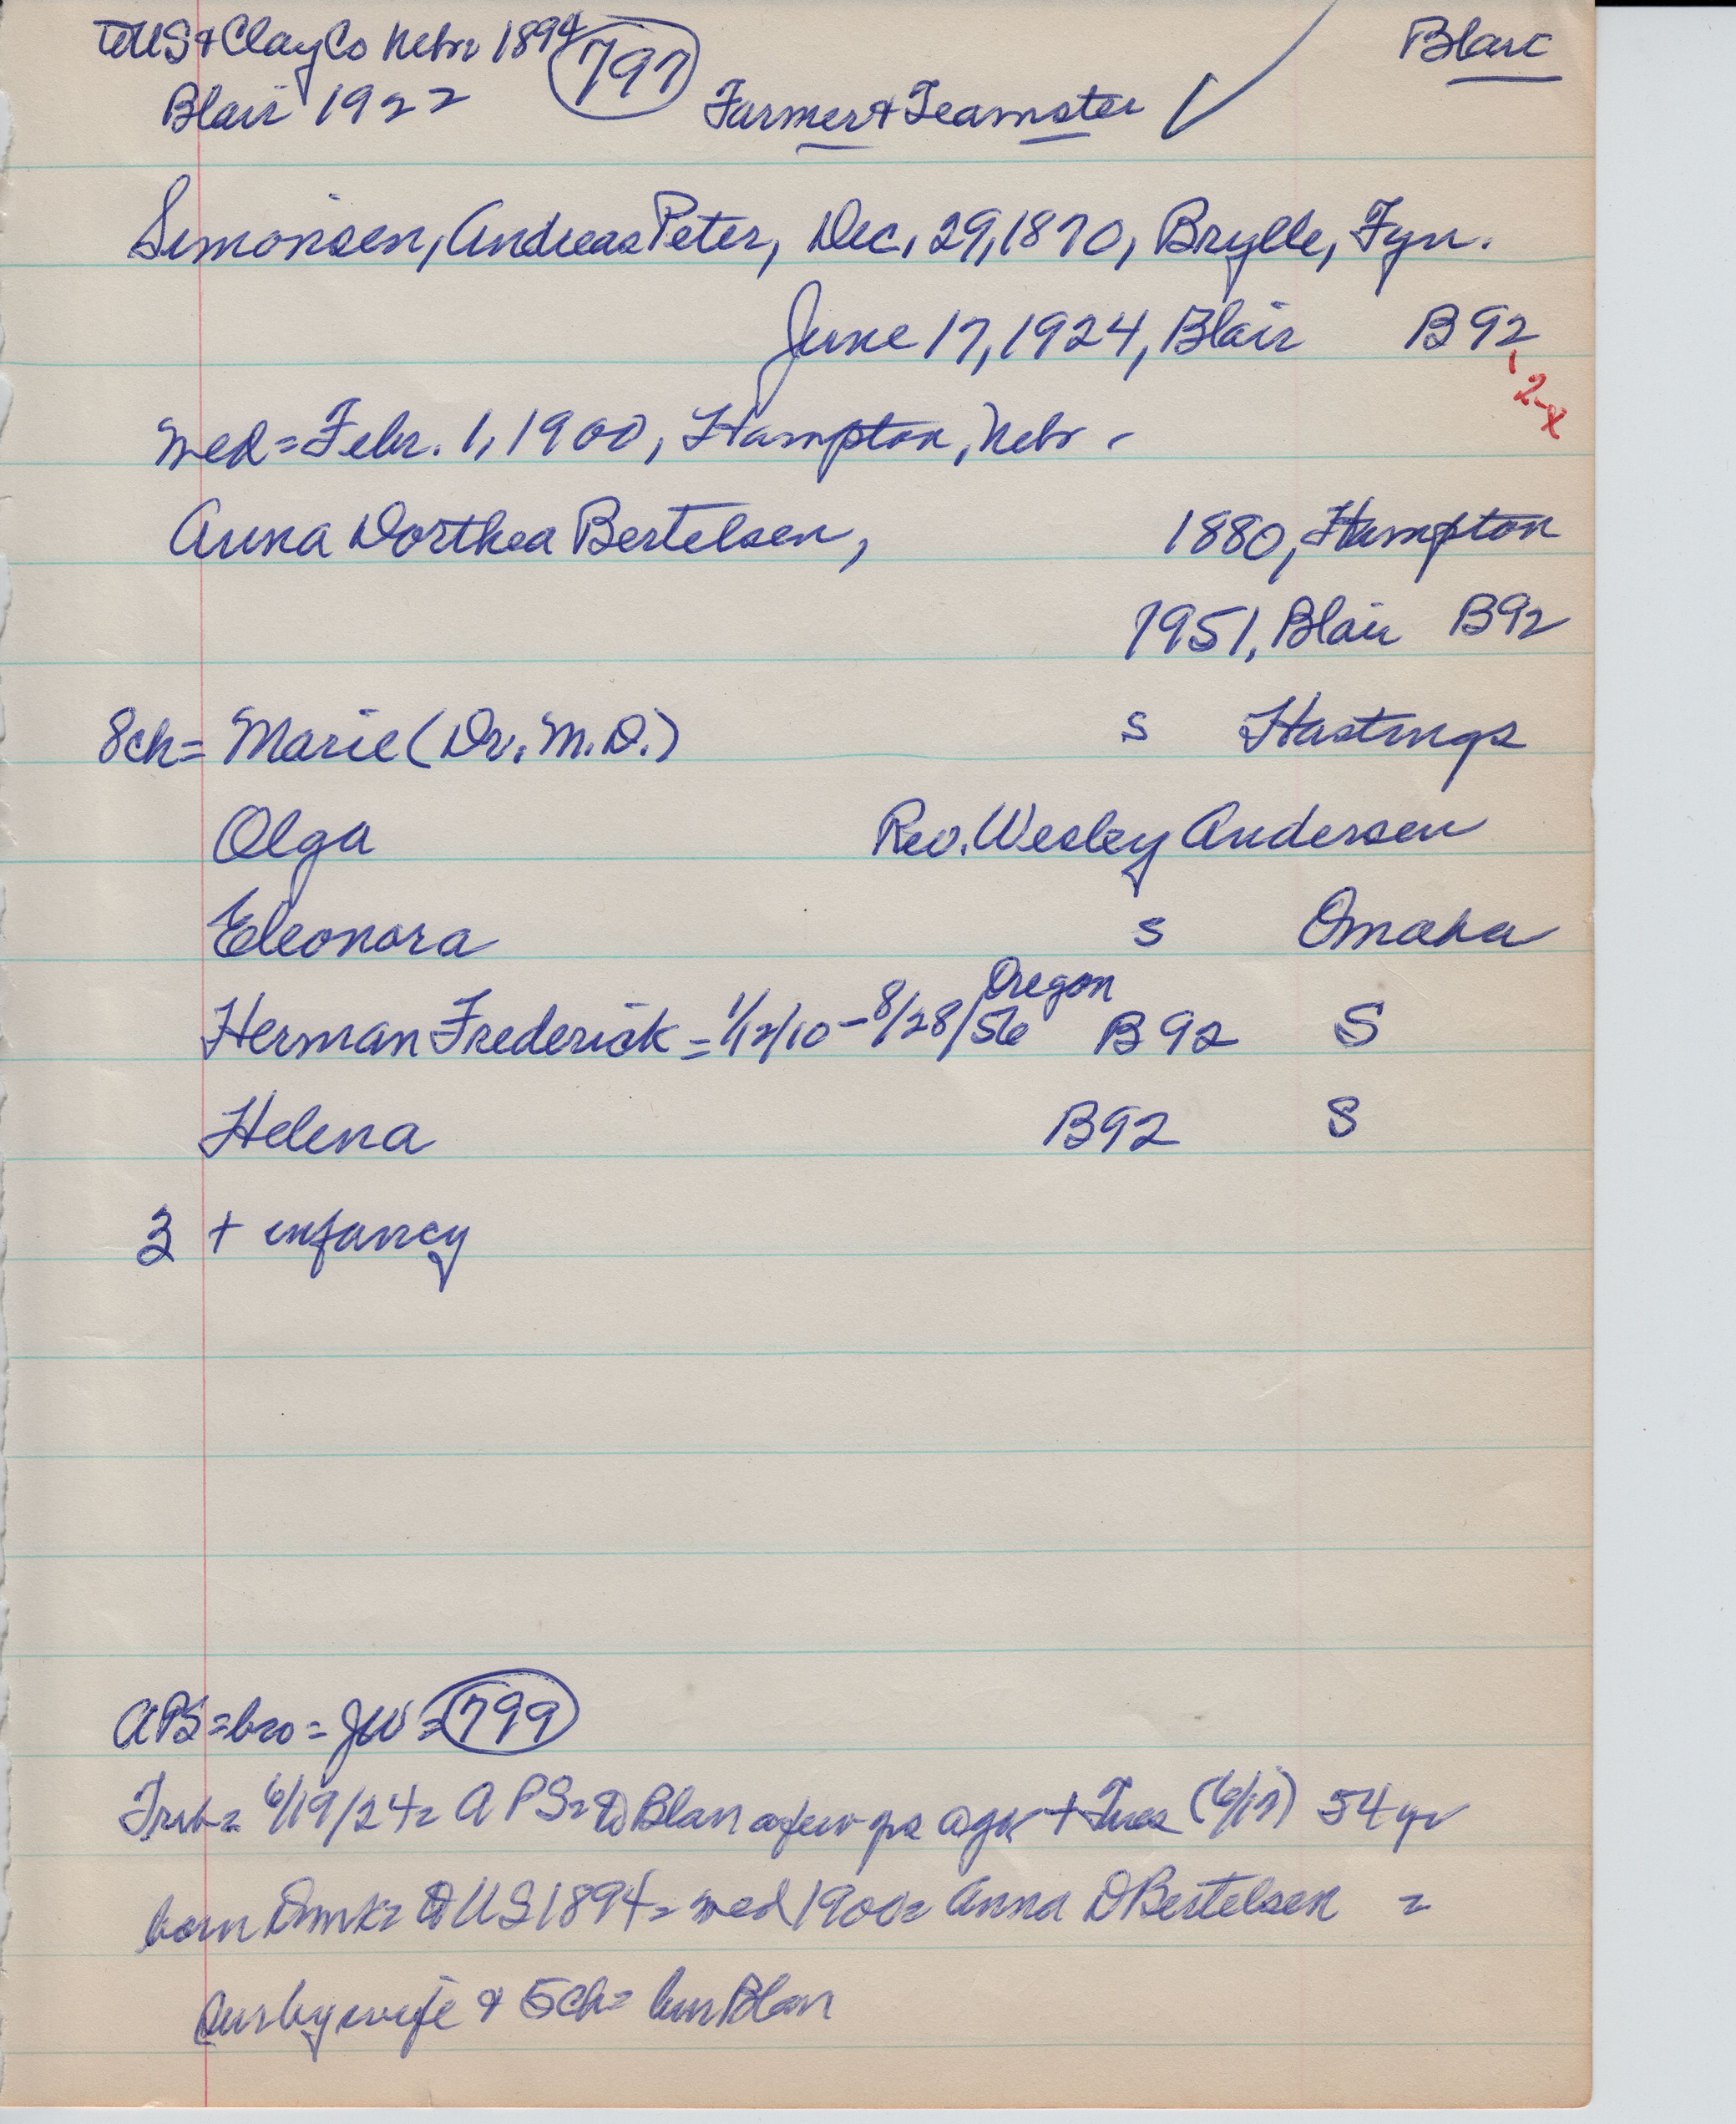 to US & Clay Co Nebr 1894 797 Blair
Blair 1922 Farmer & Teamster
Simonsen, Andreas Peter, Dec, 29, 1870, Brylle, Fyn.
June 17, 1924, Blair B92
2-x
med = Febr. 1, 1900, Hampton, Nebr.
Anna Dorthea Bertelsen, 1880, Hampton
1951, Blair B92
8ch = Marie (Dr. M.D.) s Hastings
Olga Rev. Wesley Andersen
Eleonora s Omaha
Oregon
Herman Frederick = 1/12/10 - 8/28/56 B92 S
Helena B92 S
3 + infancy
APS = bro = JW = 799
6/19/24 = APS = to Blair a few yrs ago + Tues (6/17) 54 yr
born Dmk = to US 1894 = med 1900 = Anna D Bertelsen =
sur by wife & 5ch = bur Blair